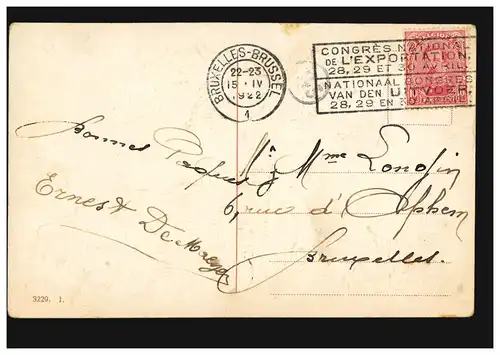 BRUXELLES-BRUSSEL
22-23
15 · IV
1922
1
CONGRÈS NATIONAL
DE L'EXPORTATION.
28, 29 ET 30 AVRIL.
NATIONAAL CONGRES
VAN DEN UITVOER.
28, 29 EN 30 APRIL
Bonnes
Pâques
Ernest De
Mr & Mme Londoin
6, rue d'Ophem
Bruxelles.
3229. 1.